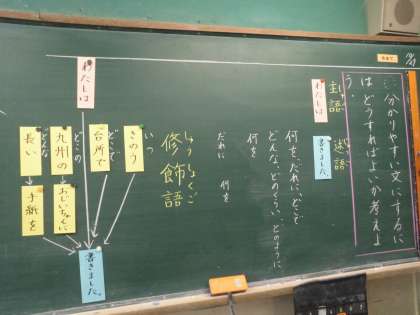 分かりやすい文にするに
は、どうすればよいか考えよ
う。
主語
述語
わたしは
書きました。
何を、だれに、どこで
どんな、どのぐらい、どのように
何を
だれに 何を
しゅうしょくご
修飾語
わたしは
いつ
きのう
どこで
台所で
どこの
九州の
おじいちゃんに
どんな
長い
手紙を
書きました。